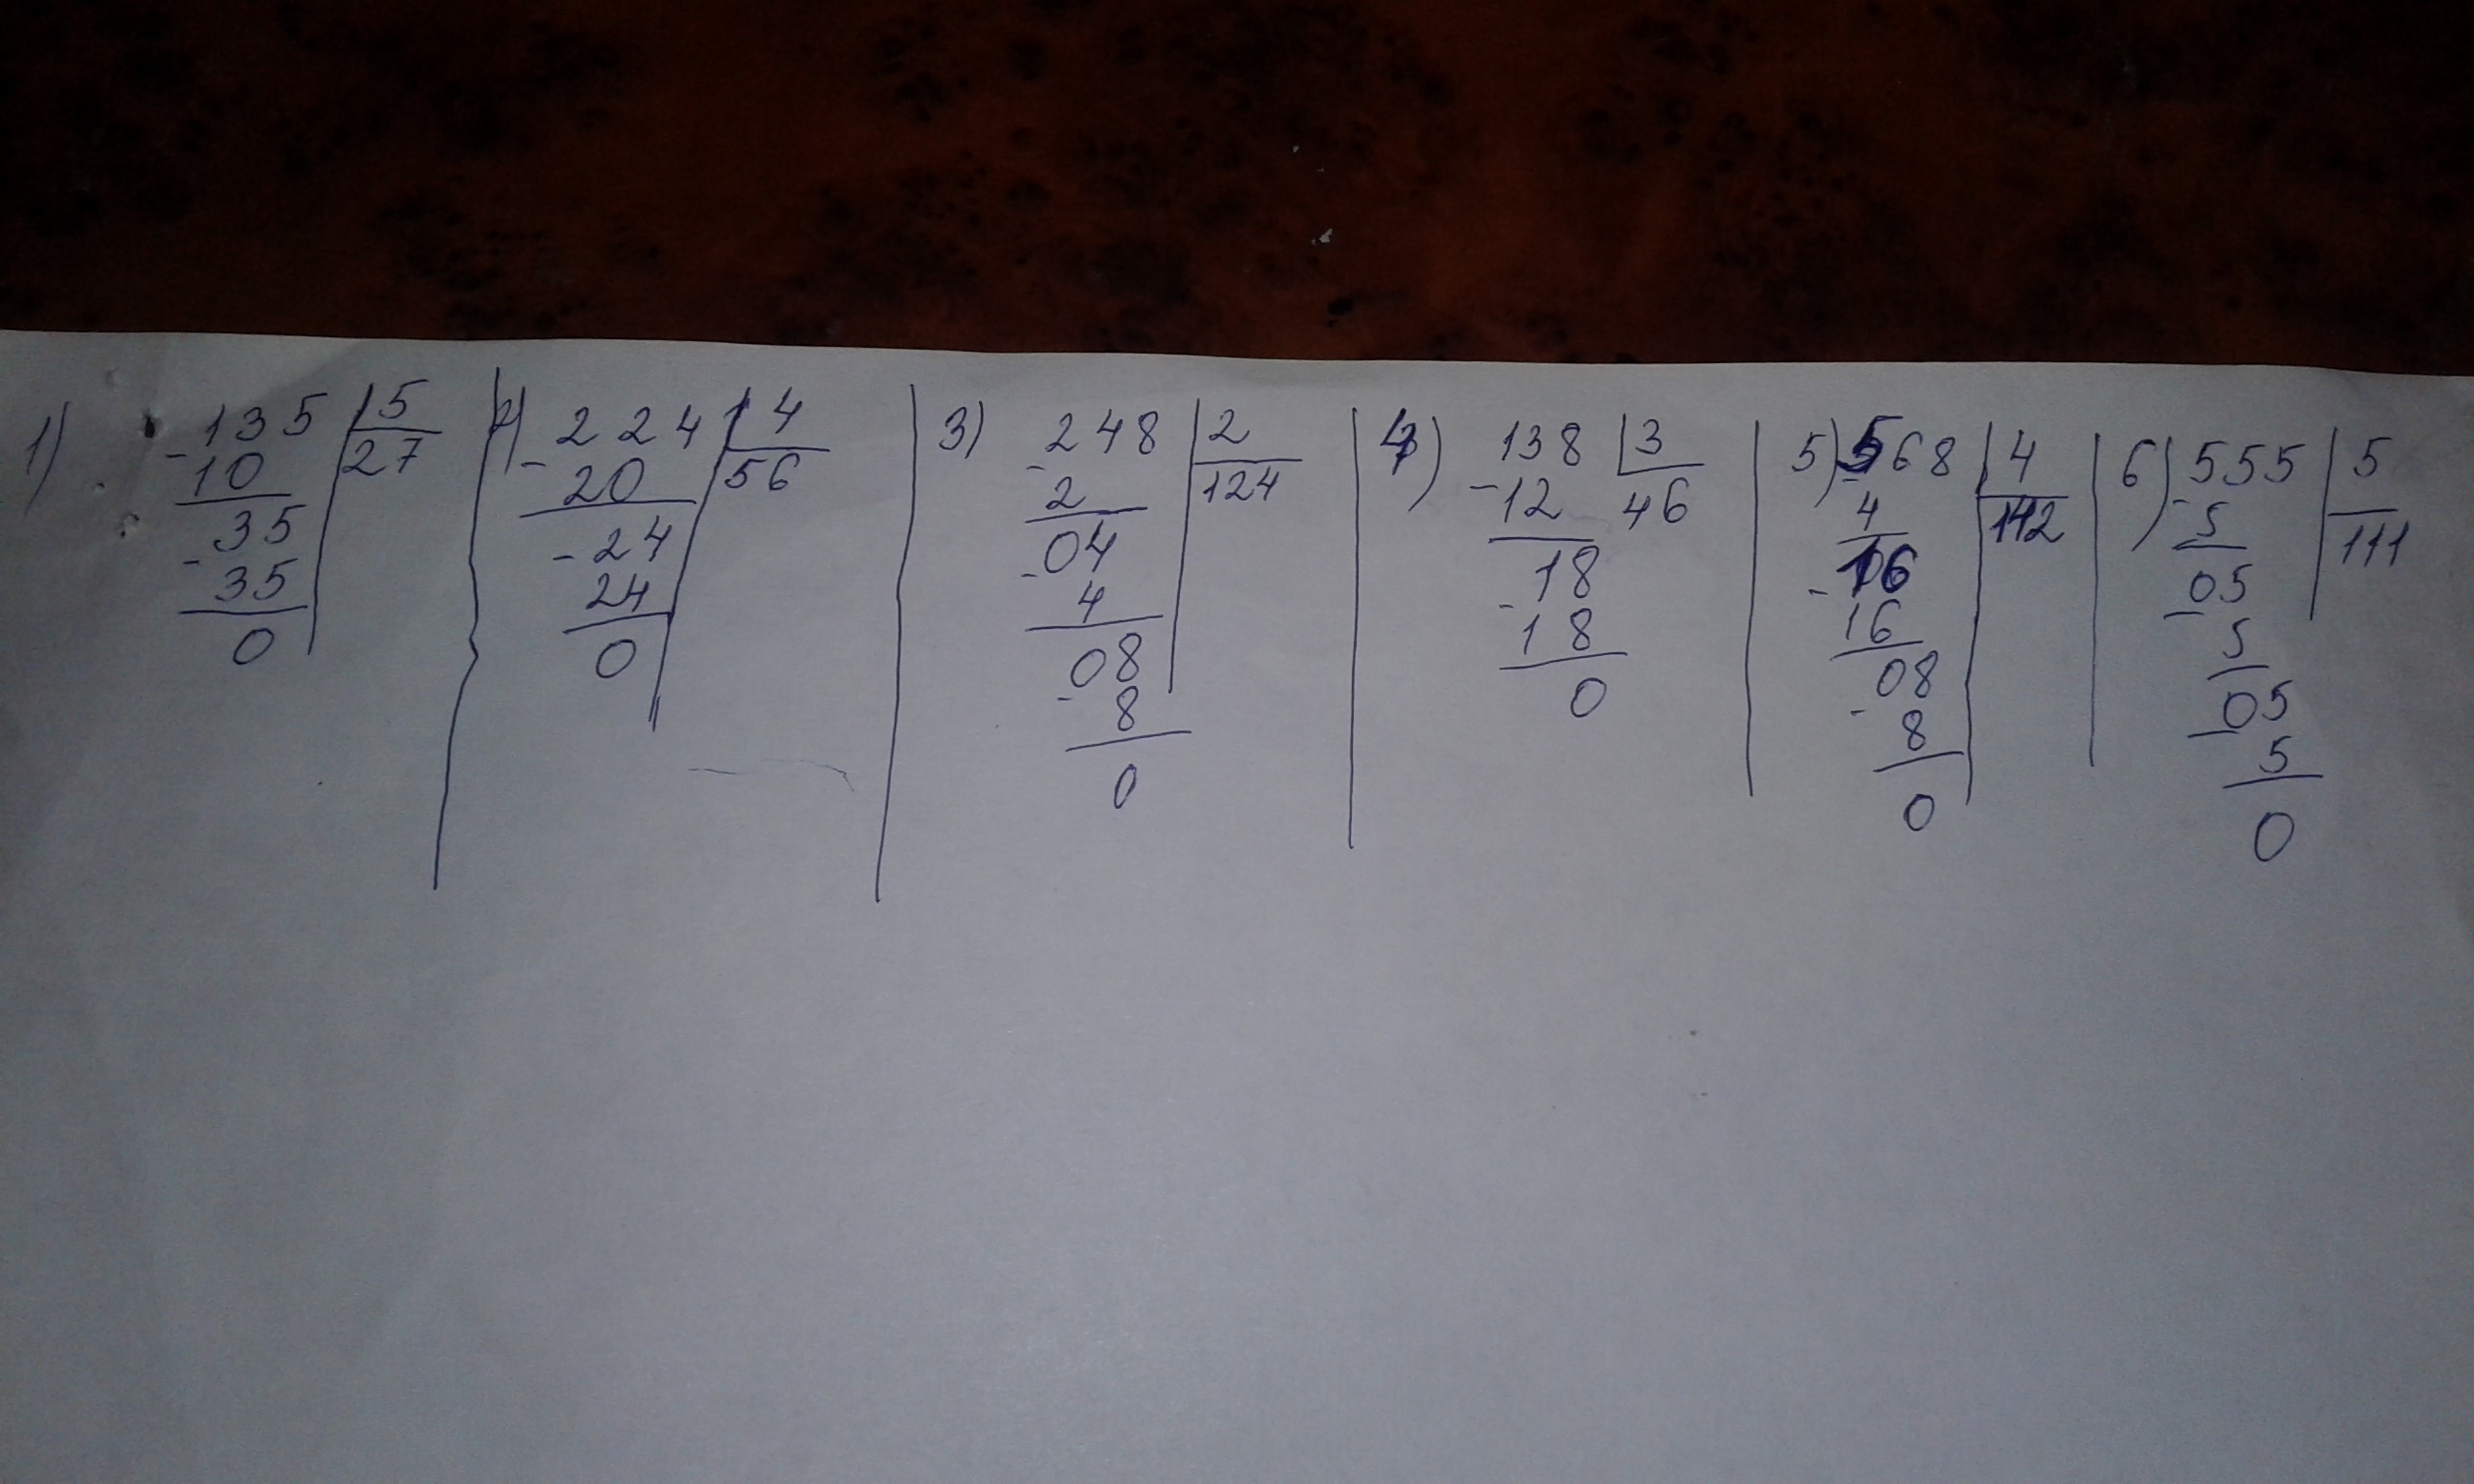 1) -135 | 5
10 | 27
35
- 35
0
2) -224 | 4
20 | 56
-24
24
0
3) -248 | 2
2 | 124
04
- 4
08
- 8
0
4) 138 | 3
-12 46
18
- 18
0
5) -568 | 4
4 | 142
-16
16
08
- 8
0
6) -555 | 5
5 | 111
05
- 5
05
- 5
0